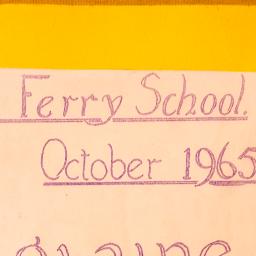 Ferry School.
October 1965